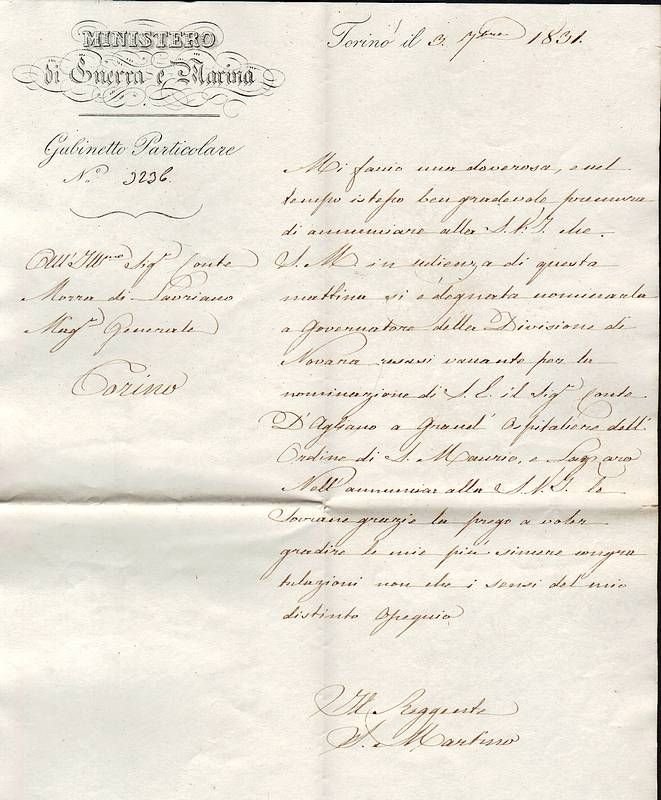 MINISTERO
di Guerra e Marina
Gabinetto Particolare
N.° 3236.
Torino il 3. 7bre 1831.
All'Ill.mo Sig.r Conte
Morra di Lavriano
Mag.r Generale
Torino
Mi faccio una doverosa, e nel
tempo istesso ben gradevole premura
di annunciare alla S.V.I. che
S.M. in udienza di questa
mattina si è degnata nominarla
a Governatore della Divisione di
Novara resasi vacante per la
nominazione di S.E. il Sig.r Conte
D'Agliano a Grand' Ospitaliere dell'
Ordine di S. Maurizio, e Lazzaro
Nell'annunciar alla S.V.I. le
Sovrane grazie la prego a voler
gradire le mie più sincere congra
tulazioni non che i sensi del mio
distinto Ossequio
Il Reggente
S. Martino